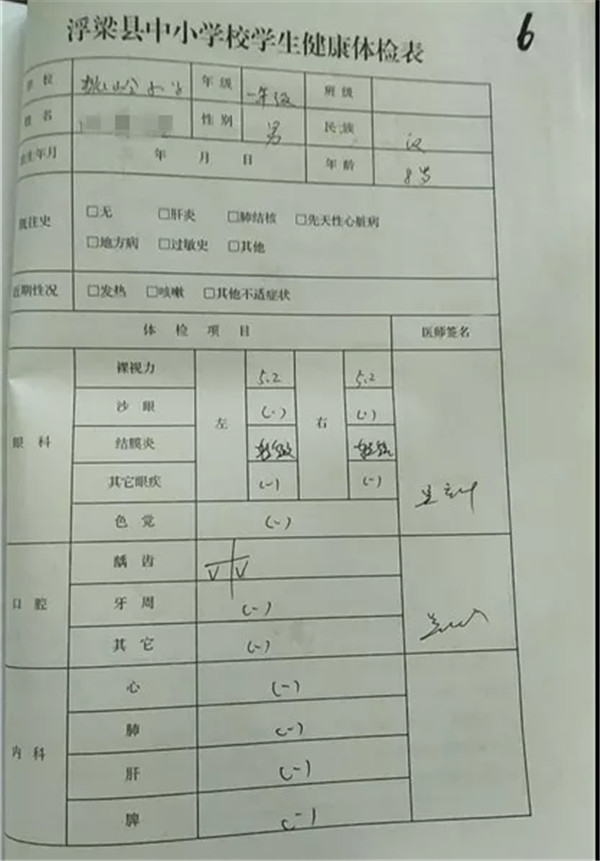 6
浮梁县中小学校学生健康体检表
学校 小学 年级 一年级 班级
姓名 性别 男 民族 汉
出生年月 年 月 日 年龄 8岁
既往史 □无 □肝炎 □肺结核 □先天性心脏病
□地方病 □过敏史 □其他
近期性况 □发热 □咳嗽 □其他不适症状
体检项目 医师签名
眼科 左 右
裸视力 5.2 5.2
沙眼 (-) (-)
结膜炎
其它眼疾 (-) (-)
色觉 (-)
口腔
龋齿 V V
牙周 (-)
其它 (-)
内科
心 (-)
肺 (-)
肝 (-)
脾 (-)